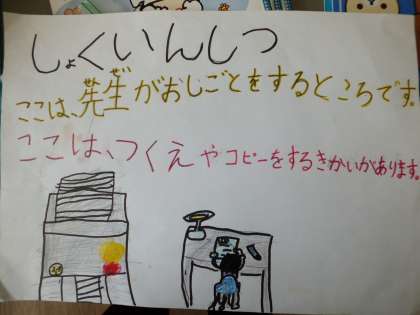 しょくいんしつ
ここは、先生がおしごとをするところです。
ここは、つくえやコピーをするきかいがあります。